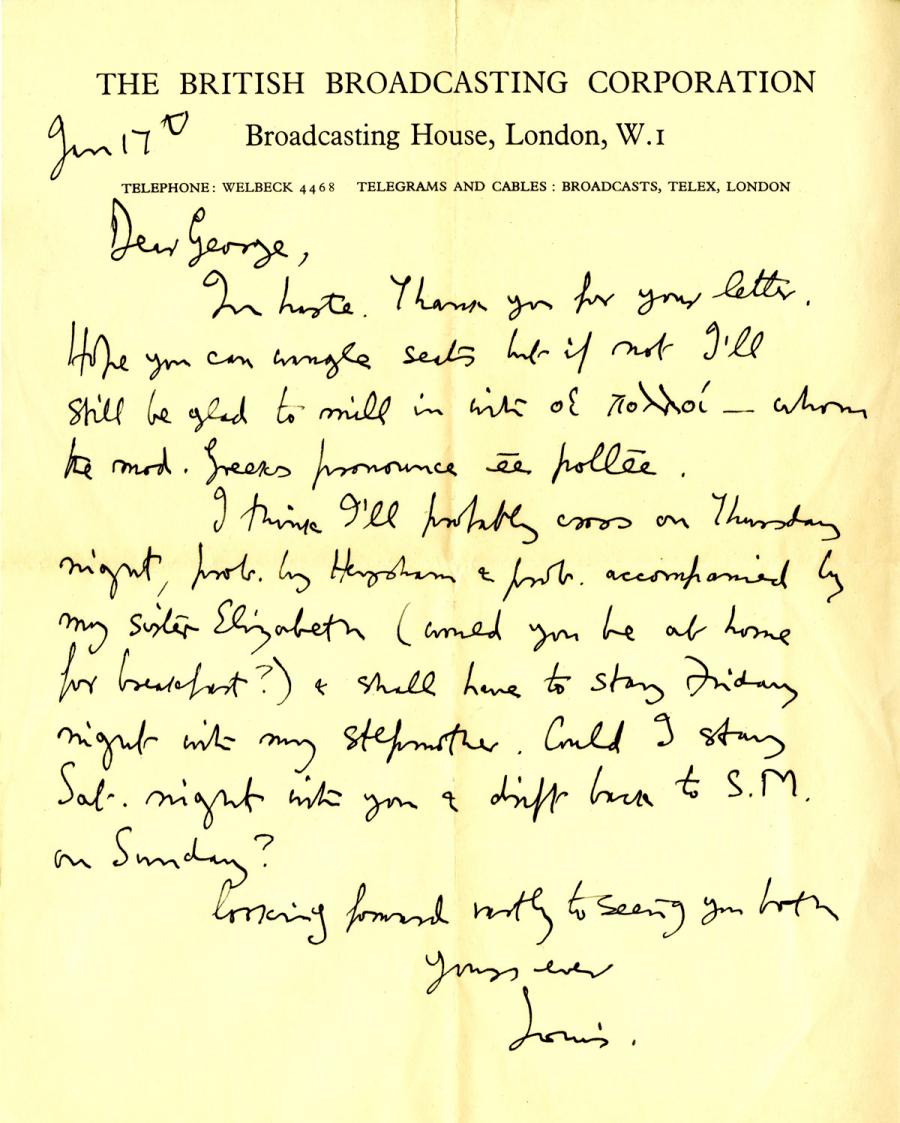 THE BRITISH BROADCASTING CORPORATION
Jan 17th
Broadcasting House, London, W.1
TELEPHONE: WELBECK 4468 TELEGRAMS AND CABLES : BROADCASTS, TELEX, LONDON
Dear George,
In haste. Thank you for your letter.
Hope you can wangle seats but if not I'll
still be glad to mill in with οἱ πολλοί — whom
the mod. Greeks pronounce ēē pollēē.
I think I'll probably cross on Thursday
night, prob. by Heysham & prob. accompanied by
my sister Elizabeth (would you be at home
for breakfast?) & shall have to stay Friday
night with my stepmother. Could I stay
Sat. night with you & drift back to S.M.
on Sunday?
Looking forward vastly to seeing you both
Yours ever
Louis.